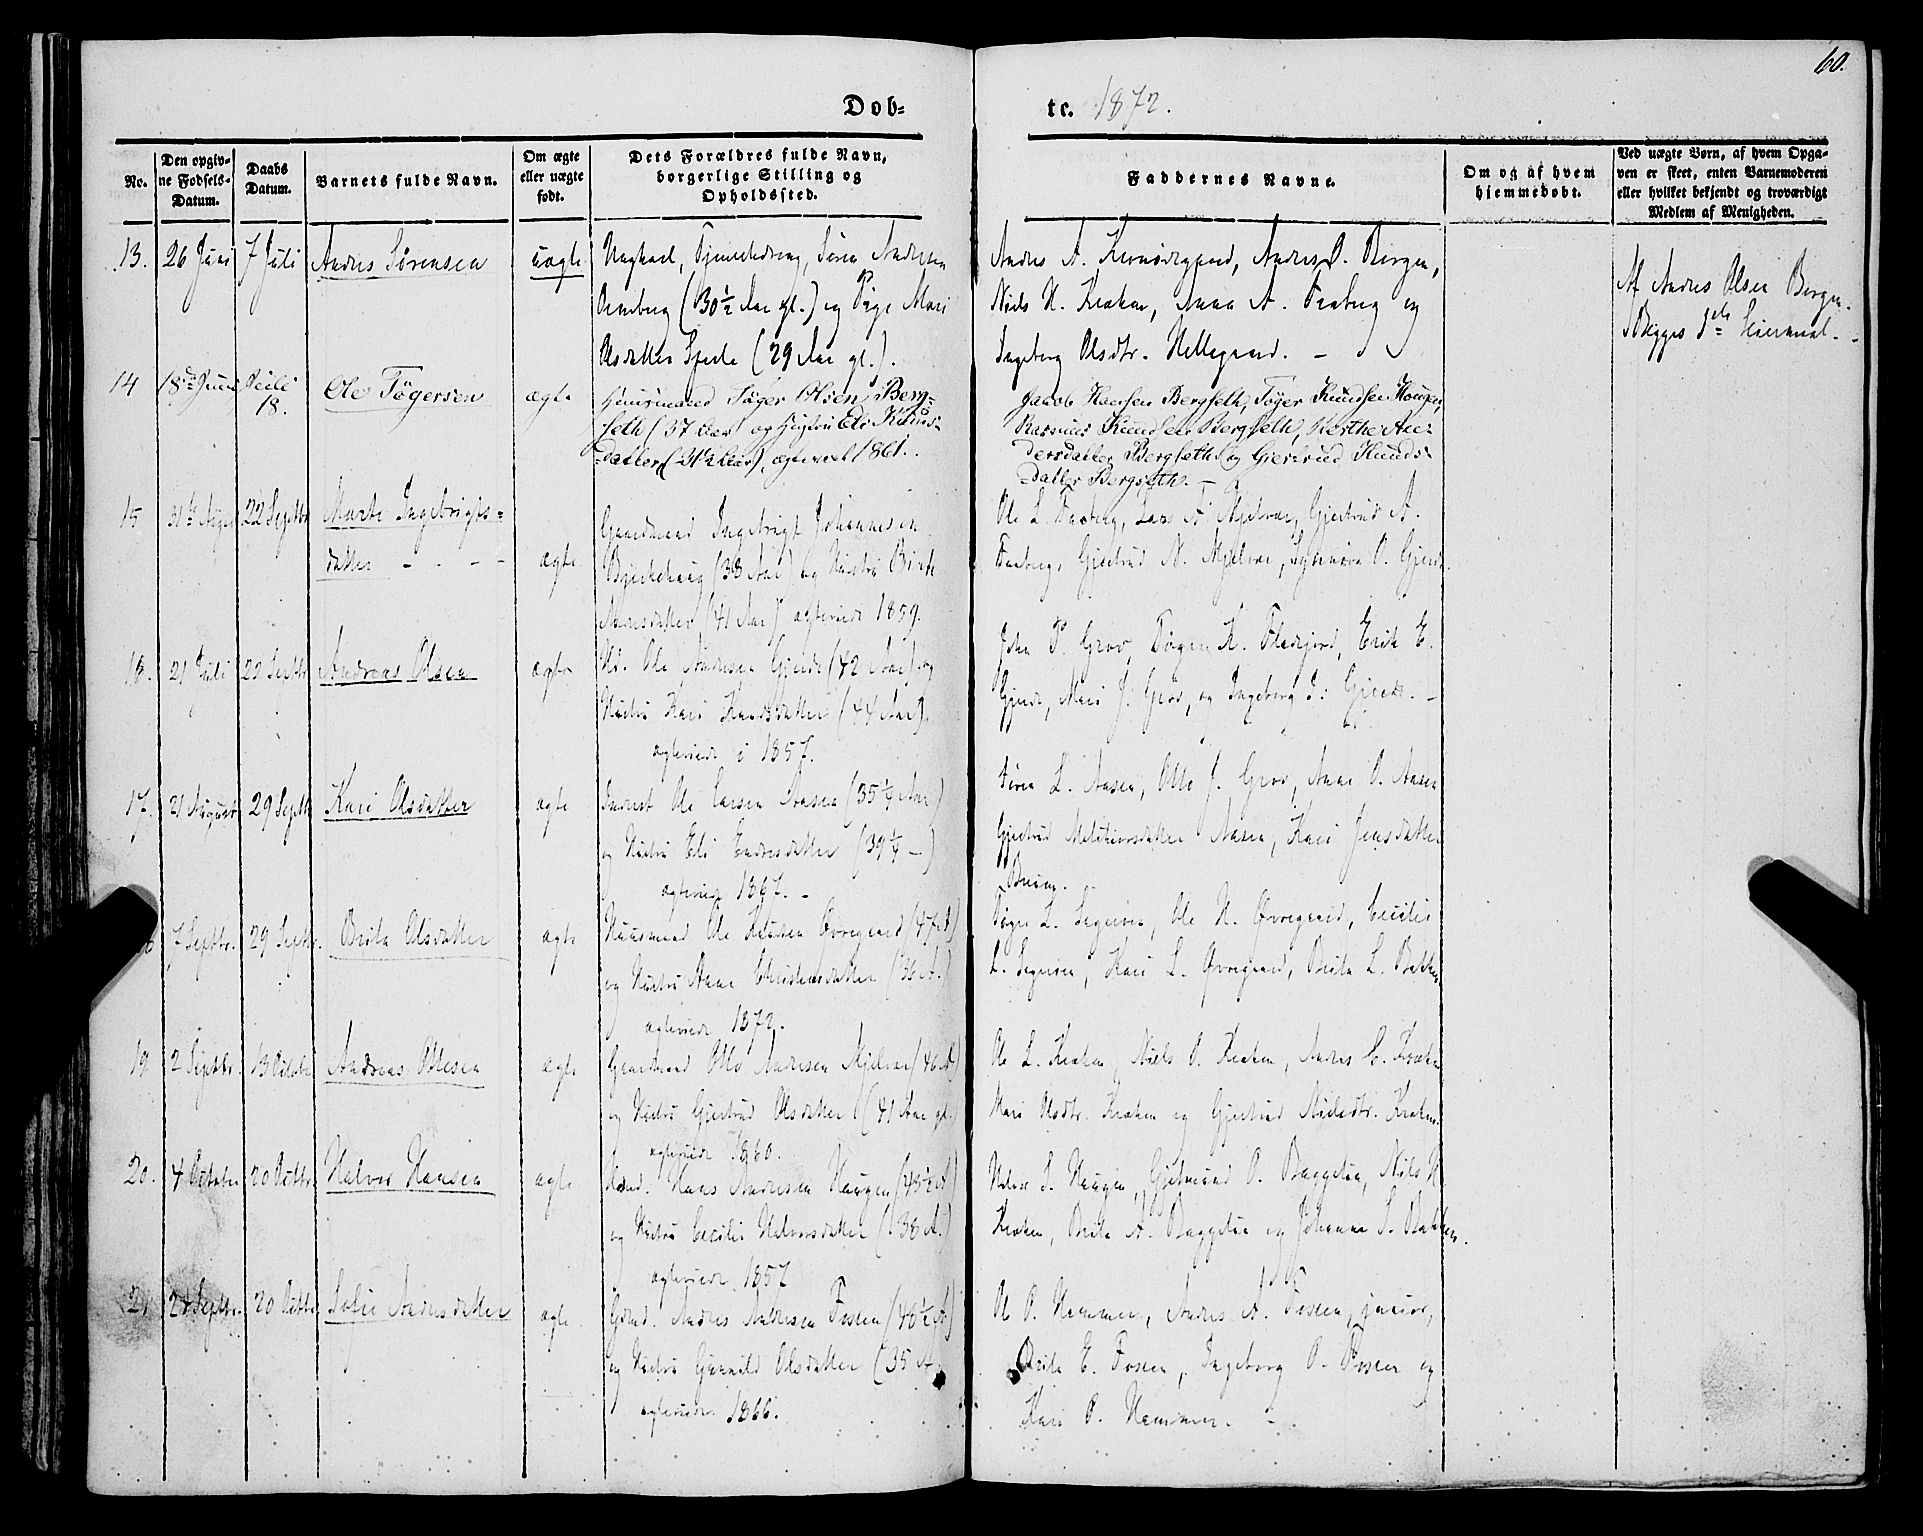 60.
Døb-
te. 1872.
No.
Den opgiv-
ne Fødsels-
Datum.
Daabs
Datum.
Barnets fulde Navn.
Om ægte
eller uægte
født.
Dets Forældres fulde Navn,
borgerlige Stilling og
Opholdssted.
Faddernes Navne.
Om og af hvem
hjemmedøbt.
Ved uægte Børn, af hvem Opga-
ven er skeet, enten Barnemoderen
eller hvilket bekjendt og troværdigt
Medlem af Menigheden.
13. 26 Juni 7 Juli Andres Sørensen uægte Ungkarl, Tjenestedreng, Søren Andresen
(30½ Aar gl.) og Pige Mari
Olsdatter (29 Aar gl.).
Andres A. Andres O. Bergen,
Niels N. Kraken, Anna A. Faaberg og
Ingeborg Olsdtr. Hellegaard. -
Af Andres Olsen Bergen.
Begges 1ste Leiermaal. -
14 18de Juni Juli
18. Ole Tøgersen ægte Huusmand Tøger Olsen Berg=
seth (37 Aar) og Hustru Eli Knuds=
datter (31½ Aar), ægteviet 1861.
Jacob Hansen Bergseth, Tøger Knudsen Hougen,
Rasmus Knudsen Bergseth, Marthe An=
dersdatter Bergseth og Giertrud Knuds=
datter Bergseth. -
15 31te August 22 Septbr Marte Ingebrigts=
datter - - - - ægte Gaardmand Ingebrigt Johannesen
Bjerkehaug (38 Aar) og Hustru Brite
Andresdatter (41 Aar) ægteviede 1859.
Ole L. Faaberg, Lars A. Mjelvær, Gjertrud A.
Faaberg, Gjertrud N. Mjelvær, O. Gjerde.
16. 21 Juli 22 Septbr Andreas Olsen ægte Ole Andresen Gjerde (42 Aar) og
Hustru Kari Knudsdatter (44 Aar).
ægteviede i 1857.
John P. Grov, Tøger K. Erik E.
Gjerde, Mari J. Grov, og Ingeborg I. Gjerde. -
17. 21 August 29 Septbr Kari Olsdatter ægte Ole Larsen Aasen (35¼ Aar)
og Hustru Eli Endresdatter (39¼ -)
ægteviede 1867. -
Søren L. Aasen, Otto J. Grov, Anne O. Aasen
Gjertrud Aasen, Kari Jensdatter
18 7 Septbr. 29 Septbr. Brita Olsdatter ægte Huusmand Ole Knudsen Øvregaard (47 A)
og Hustru Anne Christensdatter (36 A.)
ægteviede 1872.
Tøger L. Segerøen, Ole N. Øvregaard, Cecilie
L. Segerøen, Kari L. Øvregaard, Brita L. Bakken
19. 2 Septbr. 13 October Andreas Ottesen ægte Gaardmand Otto Andresen Mjelvær (46 A)
og Hustru Gjertrud Olsdatter (41 Aar gl.)
ægteviede 1860.
Ole L. Kraken, Niels O. Kraken, Andres C. Kraken
Mari Olsdtr. Kraken og Gjertrud Nielsdtr. Kraken.
20. 4 October 20 Octbr. Halvor Hansen ægte Hans Andresen Haugen (43½ A)
og Hustru Cecilie Halvorsdatter (38 A.)
ægteviede 1857
Halvor S. Haugen, Gjetmund P. Baggetøen, Niels N
Kraken, Brita A. Baggetøen og Johanne S. Bakken.
21 28 Septbr. 20 Octbr Sofie Andresdatter ægte Gdmd. Andres Andresen Fossen (40½ A)
og Hustru Gunnild Olsdatter (35 A.
ægteviede 1866.
Ole P. Hammer, Andres A. Fossen, junior,
Brita E. Fossen, Ingeborg O. Fossen og
Kari P. Hammer. -